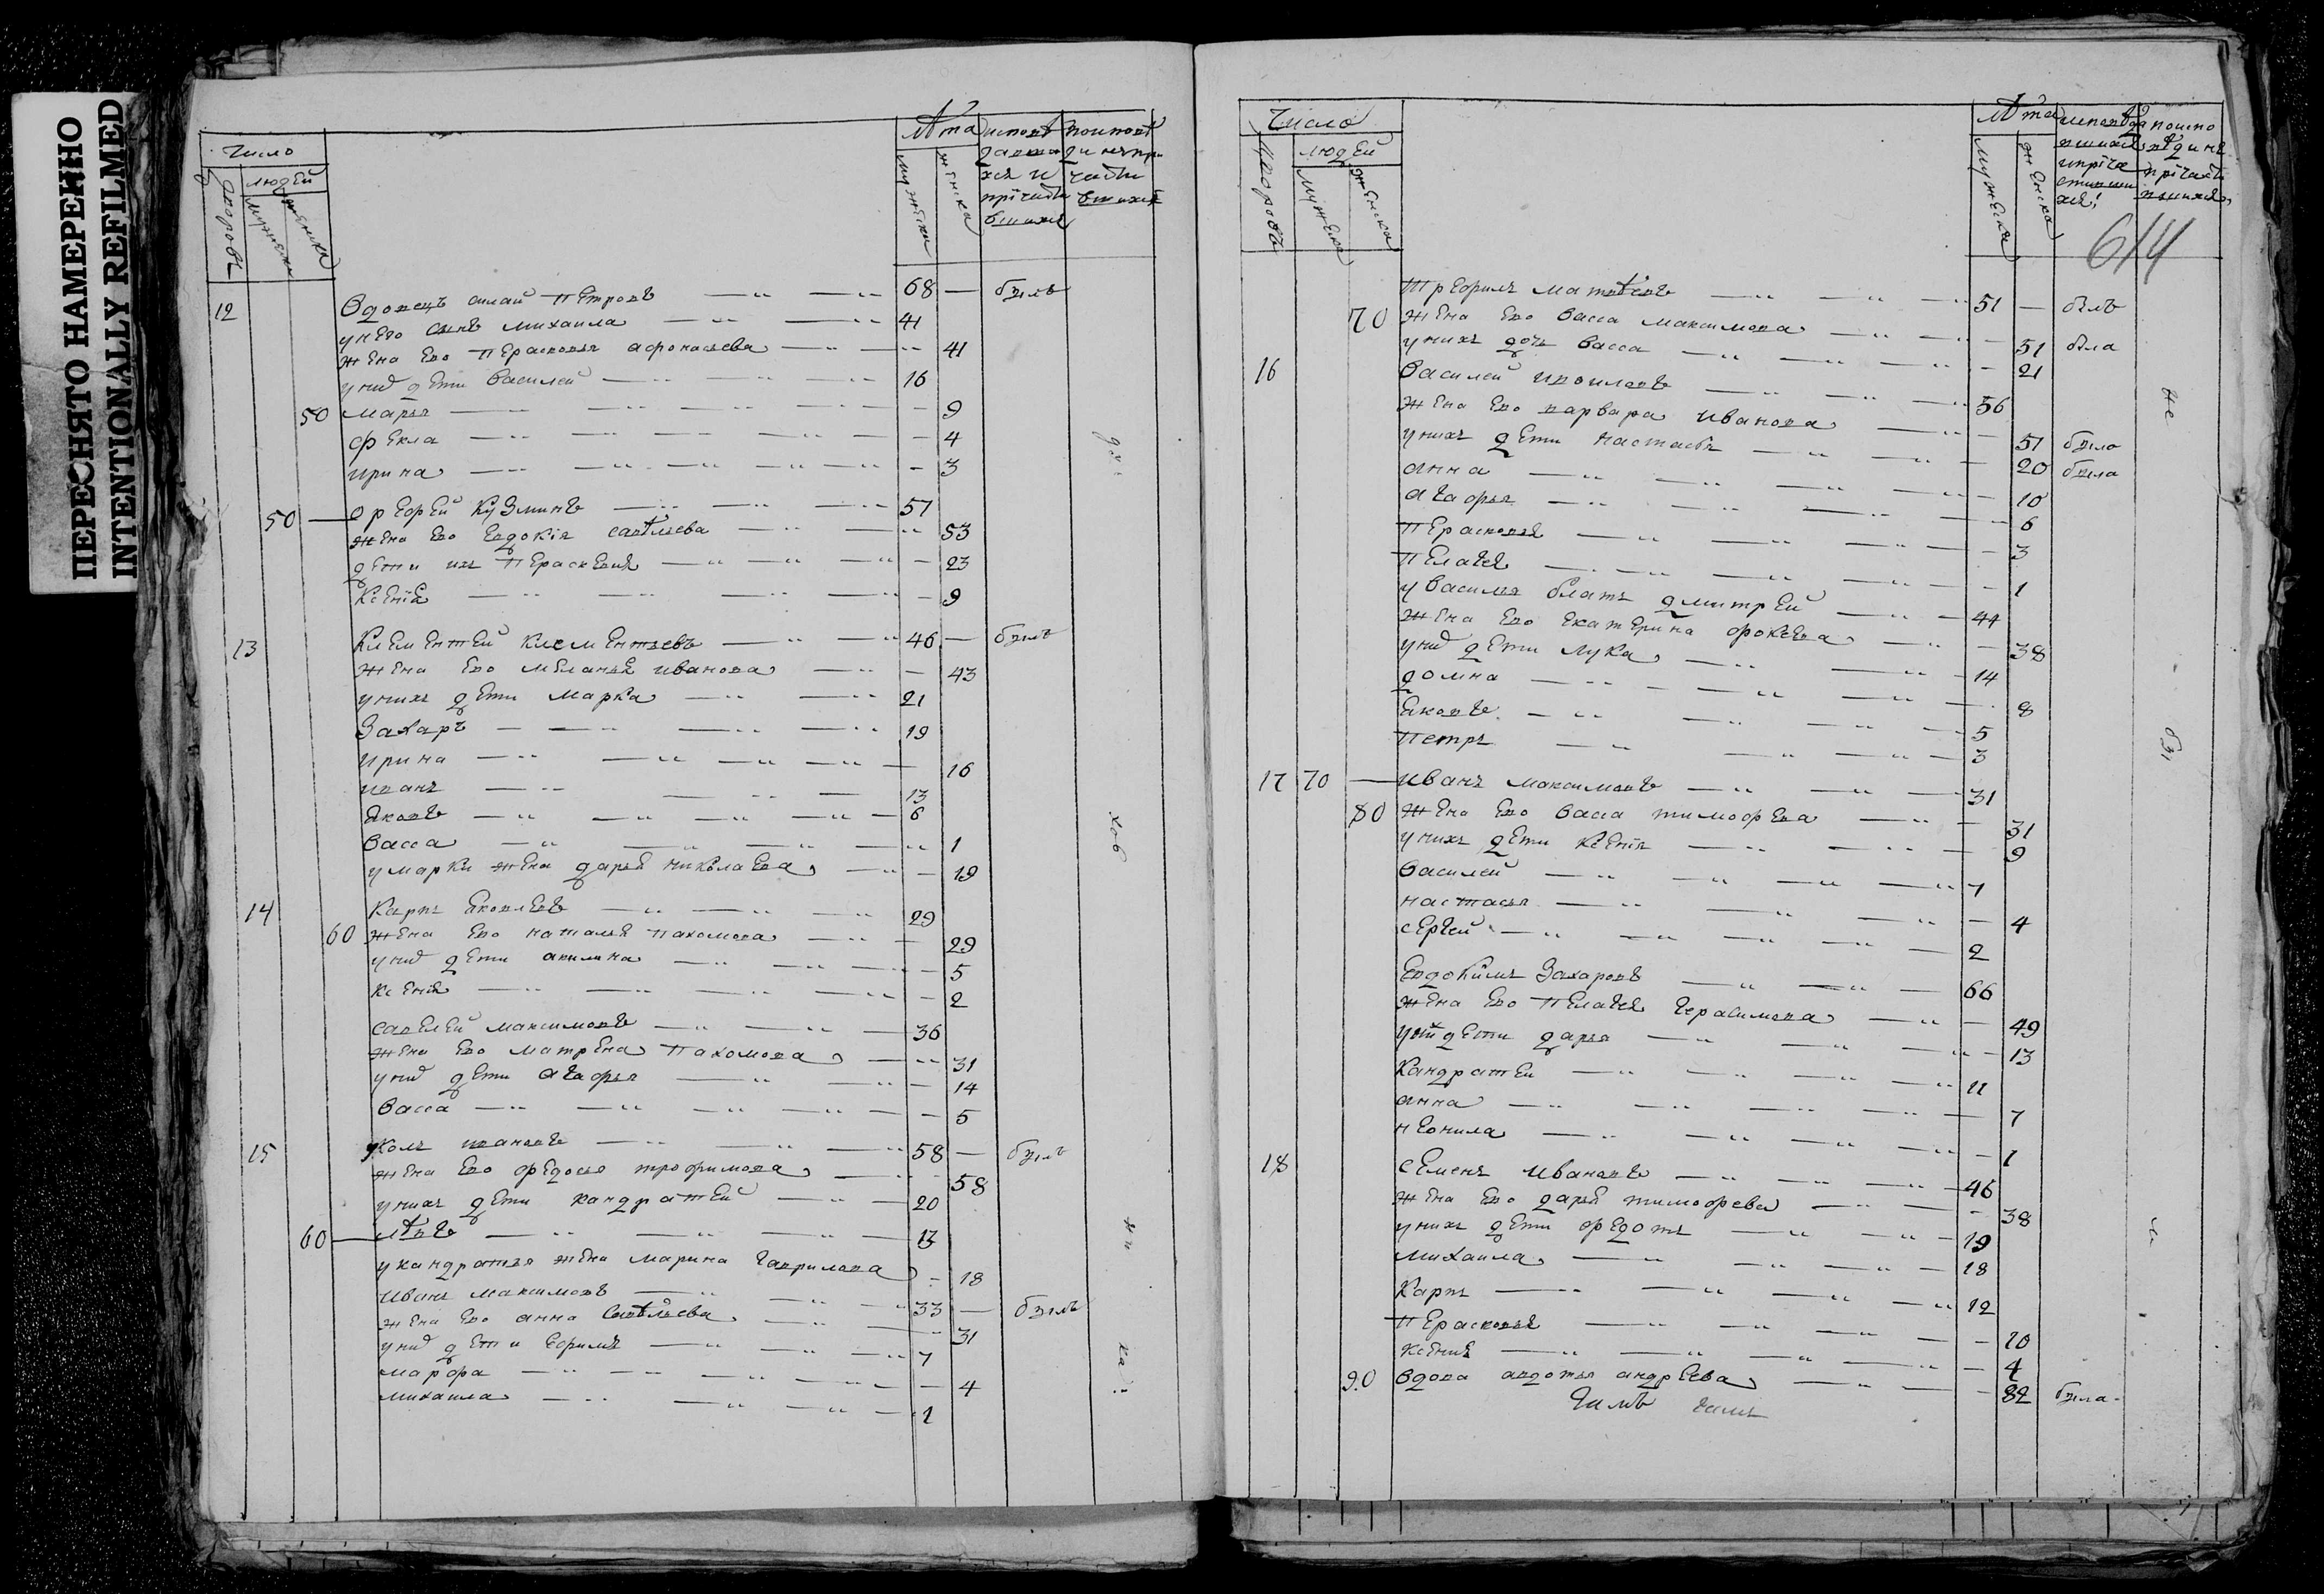 ПЕРЕСНЯТО НАМЕРЕННО
INTENTIONALLY REFILMED
число
дворовъ
людей
мужеска
женска
лѣта
мужеска
женска
исповѣдавшихся и причастившихся
12
вдовецъ Петровъ 68 былъ
у него сынъ михаила 41
жена ево перасковья афонасьева 41
у нихъ дети василей 16
50 марья 9
фекла 4
ирина 3
50 ефрей кузминъ 57
жена ево евдокiя савѣльева 53
дети ихъ перасковия 23
ксенiя 9
13 климентей клементьевъ 46 былъ
жена ево меланья иванова 43
у нихъ дети марка 21
захаръ 19
ирина 16
иванъ 13
яковъ 6
васса 1
у марки жена дарья николаева 19
14 карпъ яковлевъ 29
60 жена ево наталья пахомова 29
у нихъ дети акилина 5
ксения 2
савелей максимовъ 36
жена ево матрена пахомова 31
у нихъ дети агафья 14
васса 5
15 ивановъ 58 былъ
жена ево федосья трофимова 58
у нихъ дети кандратей 20
60 лѣвъ 13
у кандратья жена марина гаврилова 18
иванъ максимовъ 33 былъ
жена ево анна савѣльева 31
у нихъ дети ефимъ 7
марфа 4
михаила 1
число
дворовъ
людей
мужеска
женска
лѣта
мужеска
женска
614
матвѣевъ 51 былъ
70 жена ево васса максимова 51 была
у нихъ дочь васса 21
16 василей 56
жена ево варвара иванова 51 была
у нихъ дети настасья 20 была
анна 10
агафья 6
перасковья 3
пелагея 1
у василья братъ дмитрей 44
жена ево екатерина фокеева 38
у нихъ дети лука 14
домна 8
яковъ 5
петръ 3
17 70 иванъ максимовъ 31
80 жена ево васса тимофева 31
у нихъ дети ксенiя 9
василей 7
настасья 4
сергей 2
евдокимъ захаровъ 66
жена ево пелагея герасимова 49
у нихъ дети дарья 13
кандратей 11
анна 7
неонила 1
18 семенъ ивановъ 46
жена ево дарья тимофеева 38
у нихъ дети федотъ 19
михаила 18
карпъ 12
перасковья 10
ксения 4
90 вдова авдотья андреева 82 была